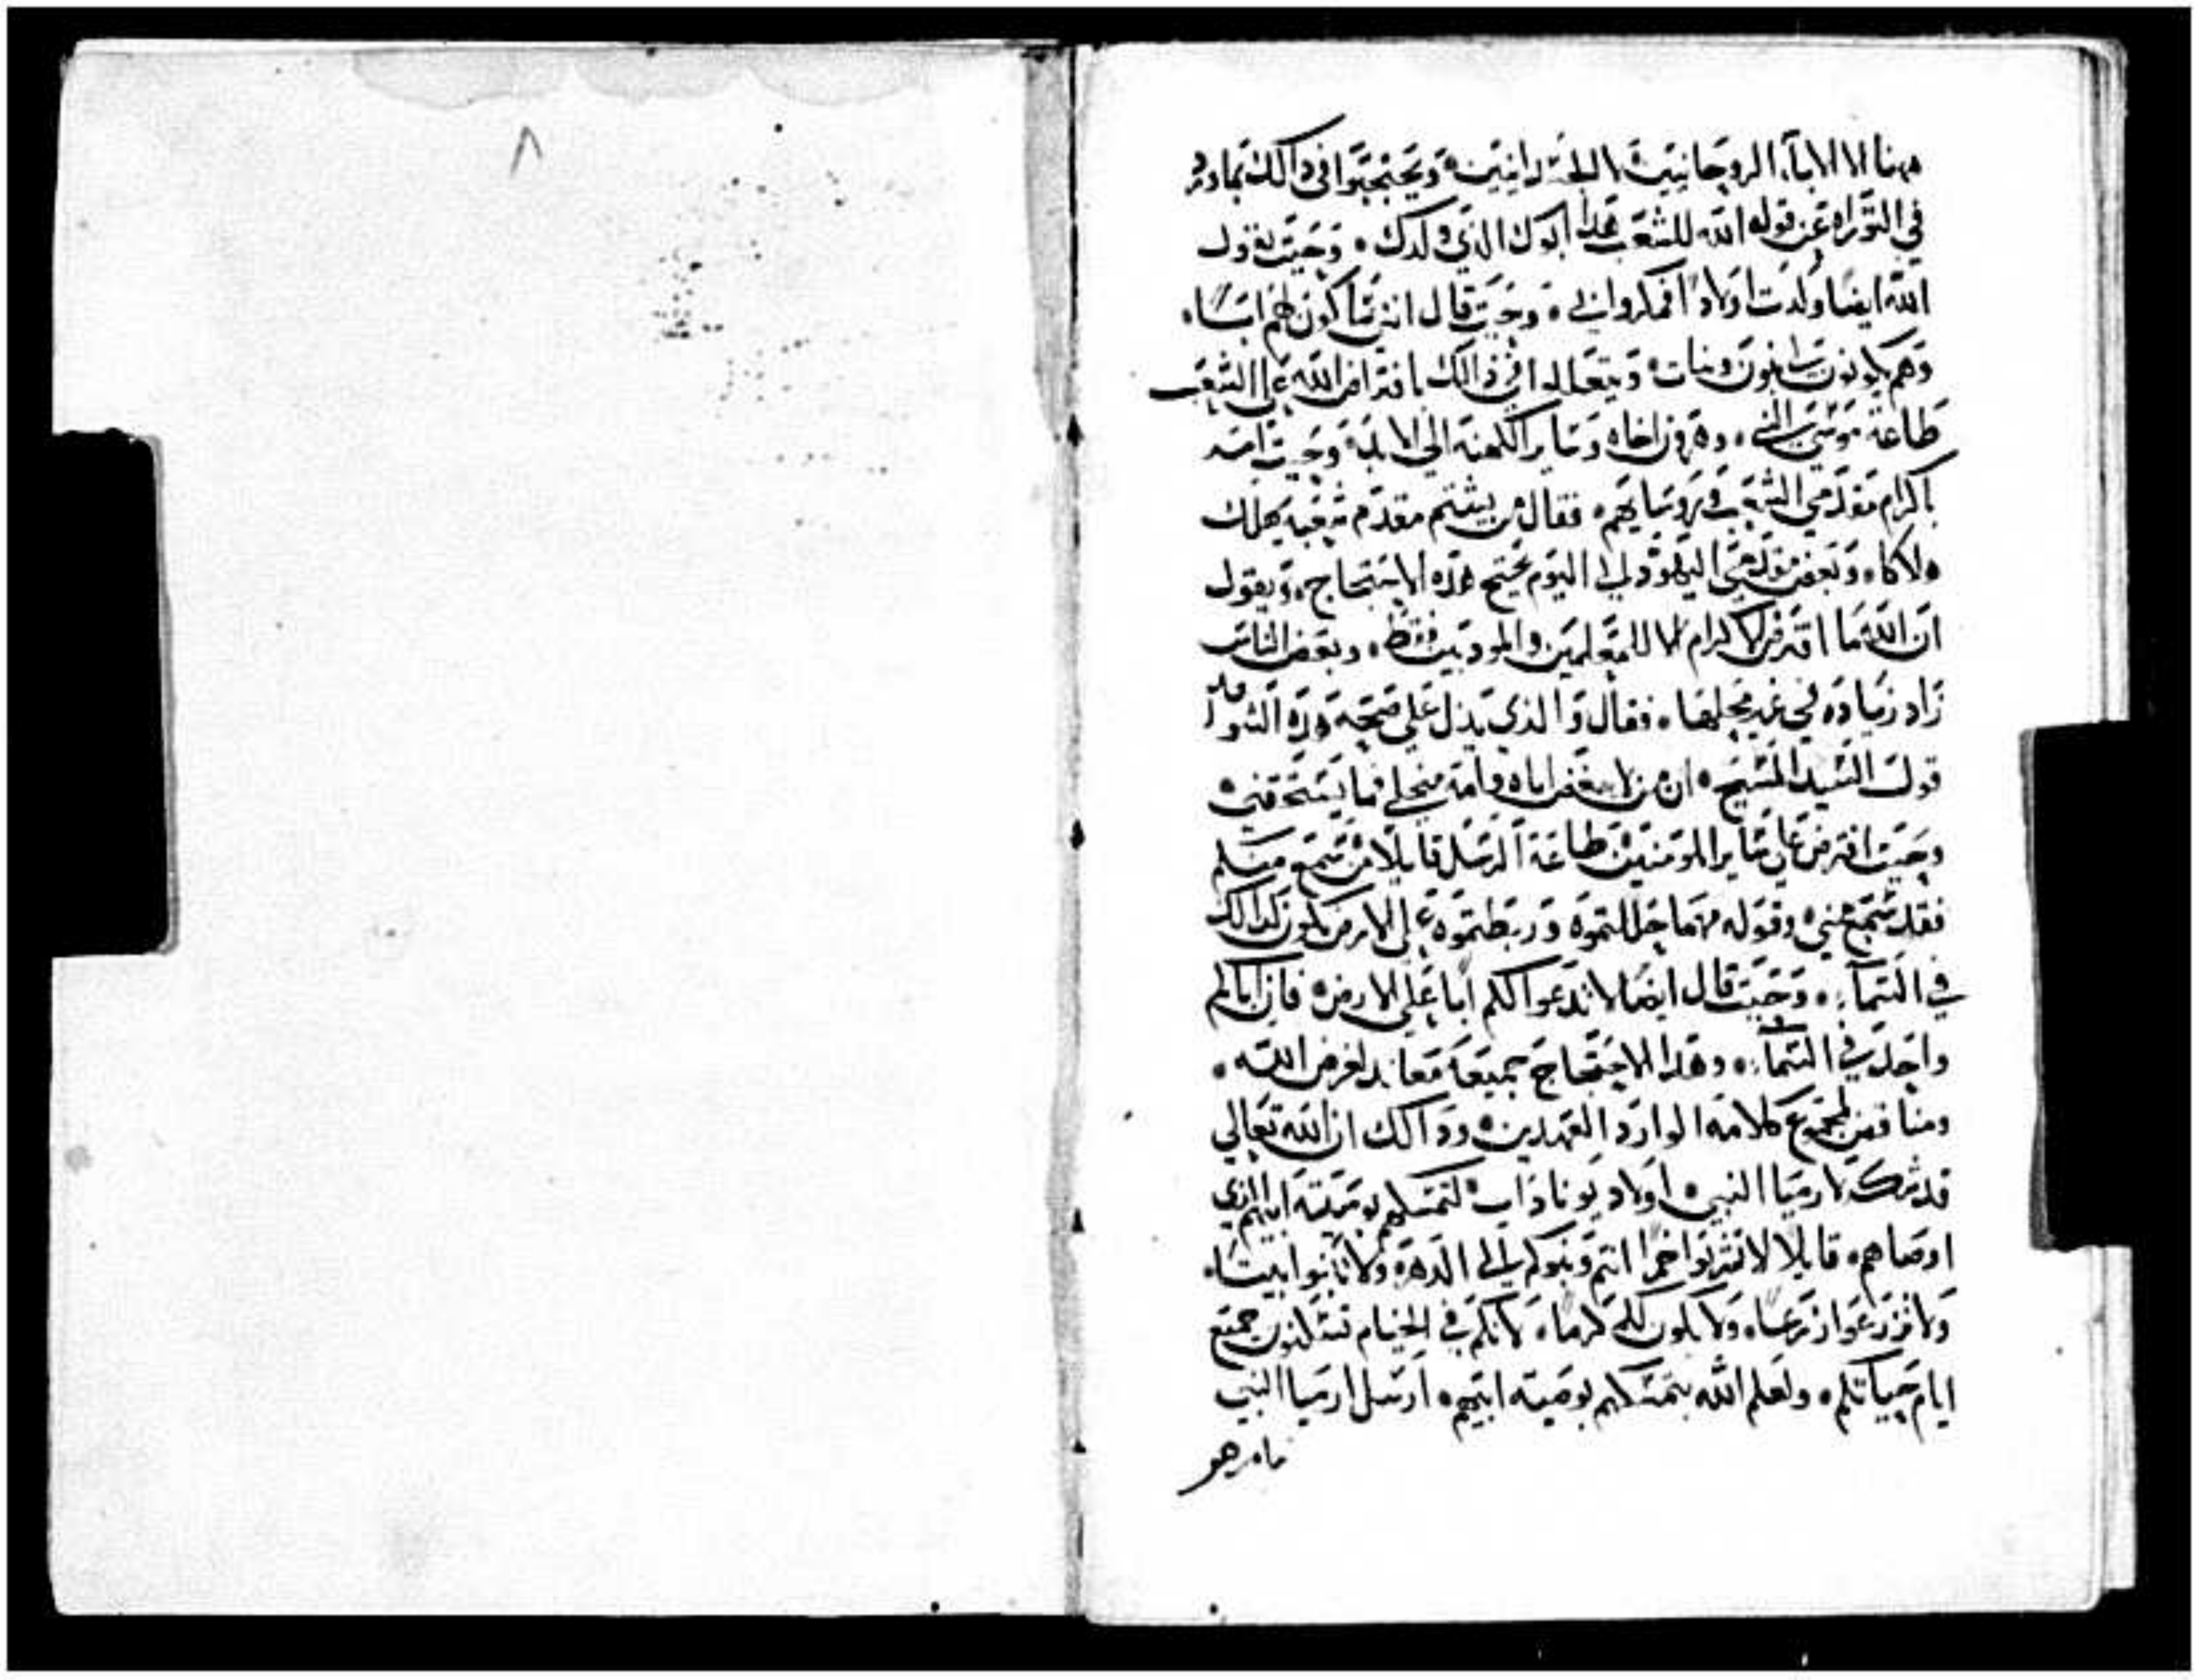 ٨
ههنا الا الاباء الروحانيين لا الجسدانيين، ويحتجوا في ذالك بما ورد
في التوراه عن قوله الله للشعب هذا ابوك الذي ولدك، وحيث يقول
الله ايضا ولدت اولادا فمكروا بي، وحيث قال انني ساكون لهم ابا،
وهم يكونون لي بنون وبنات، ويتعللوا في ذالك بافتراض الله على الشعب
طاعة موسى النبي، وهرون اخاه وساير الكهنه الى الابد، وحيث امر
باكرام مقدمي الشعب وروسايهم، فقال من يشتم مقدم شعبه يهلك
هلاكا، وبعض مقدمي اليهود الى اليوم يحتج هذه الاحتجاج، ويقول
ان الله ما افترض الاكرام الا للمعلمين والمودبين فقط، وبعض الناس
زاد زياده في غير محلها، فقال والذي يدل على صحة هذه
قول السيد المسيح، ان من لا يبغض اباه وامه من اجلي فما يستحقني،
وحيث افترض على ساير المومنين طاعة الرسل قايلا من سمع منكم
فقد سمع مني، وقوله مهما حللتموه وربطتموه على الارض يكون كذالك
في السماء، وحيث قال ايضا لا تدعوا لكم ابا على الارض، فان اباكم
واحد في السماء، وهذا الاحتجاج جميعه معاند لغرض الله،
ومناقض لمجموع كلامه الوارد العهدين، وذالك ان الله تعالى
قد شكر لارميا النبي، اولاد يوناداب، لتمسكهم بوصية ابيهم الذي
اوصاهم، قايلا لا تشربوا خمرا انتم وبنوكم الى الدهر، ولا تبنوا بيتا،
ولا تزرعوا زرعا، ولا يكون لكم كرما، لانكم في الخيام تسكنون جميع
ايام حياتكم، ولعلم الله بتمسكهم بوصية ابيهم، ارسل ارميا النبي